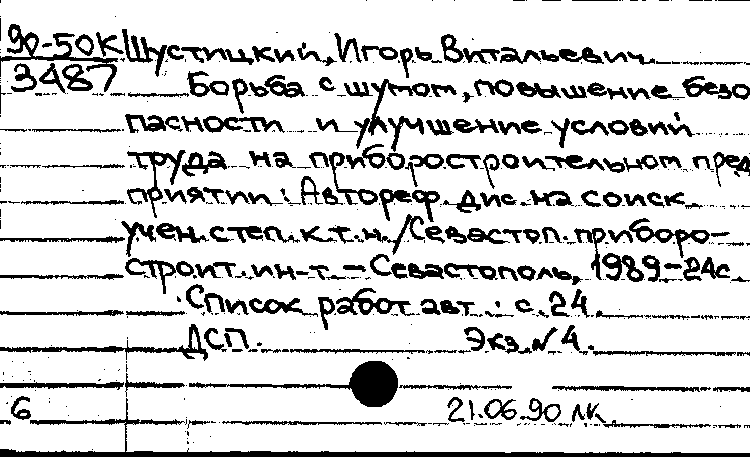 90-50К Шустицкий, Игорь Витальевич.
3487 Борьба с шумом, повышение безо
пасности и улучшение условий
труда на приборостроительном пред
приятии: Автореф. дис. на соиск.
учен. степ. к.т.н. / Севастоп. приборо-
строит. ин-т. - Севастополь, 1989 - 24с.
Список работ авт.: с. 24.
ДСП. Экз. № 4.
6 21.06.90 лк.